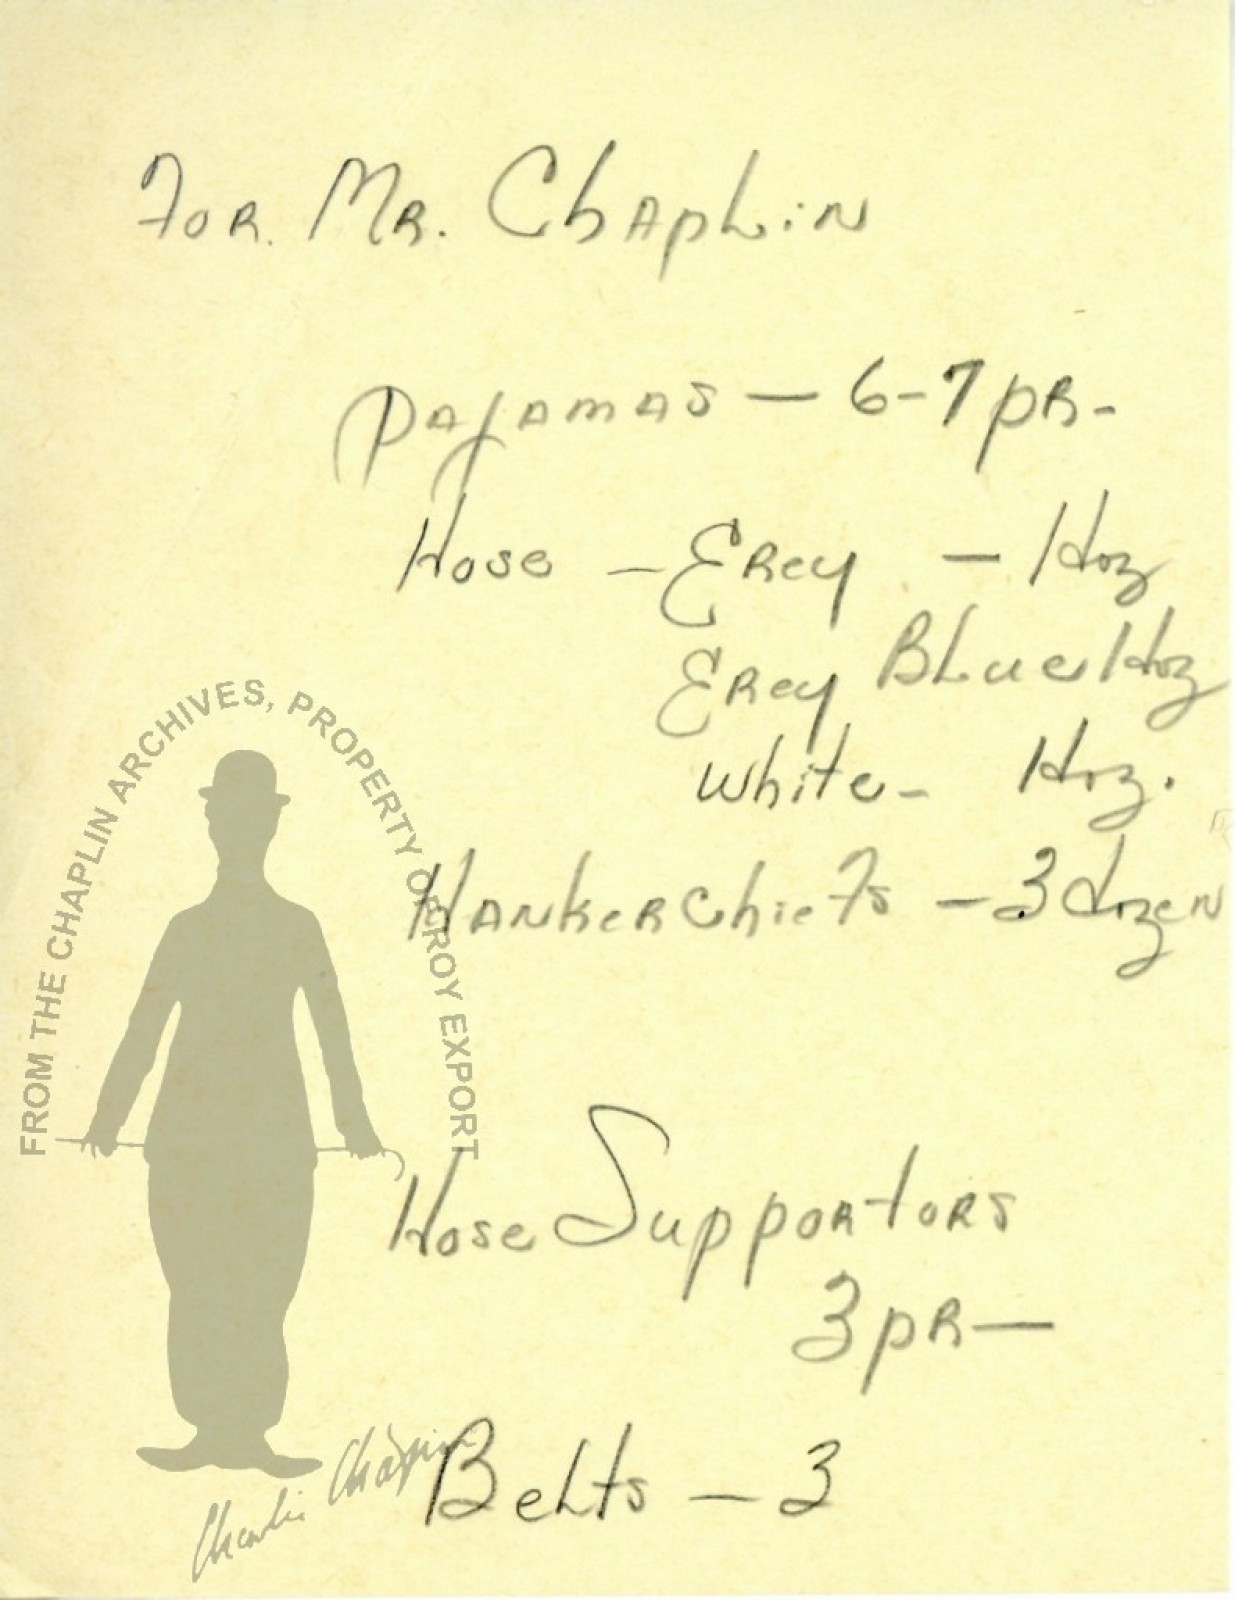 For. Mr. Chaplin
Pajamas — 6-7 pr-
Hose — Grey — 1 doz
Grey Blue 1 doz
White - 1 doz.
Hankerchiefs - 3 dozen
Hose Supportors
3 pr —
Belts - 3
FROM THE CHAPLIN ARCHIVES, PROPERTY OF ROY EXPORT
Charlie Chaplin